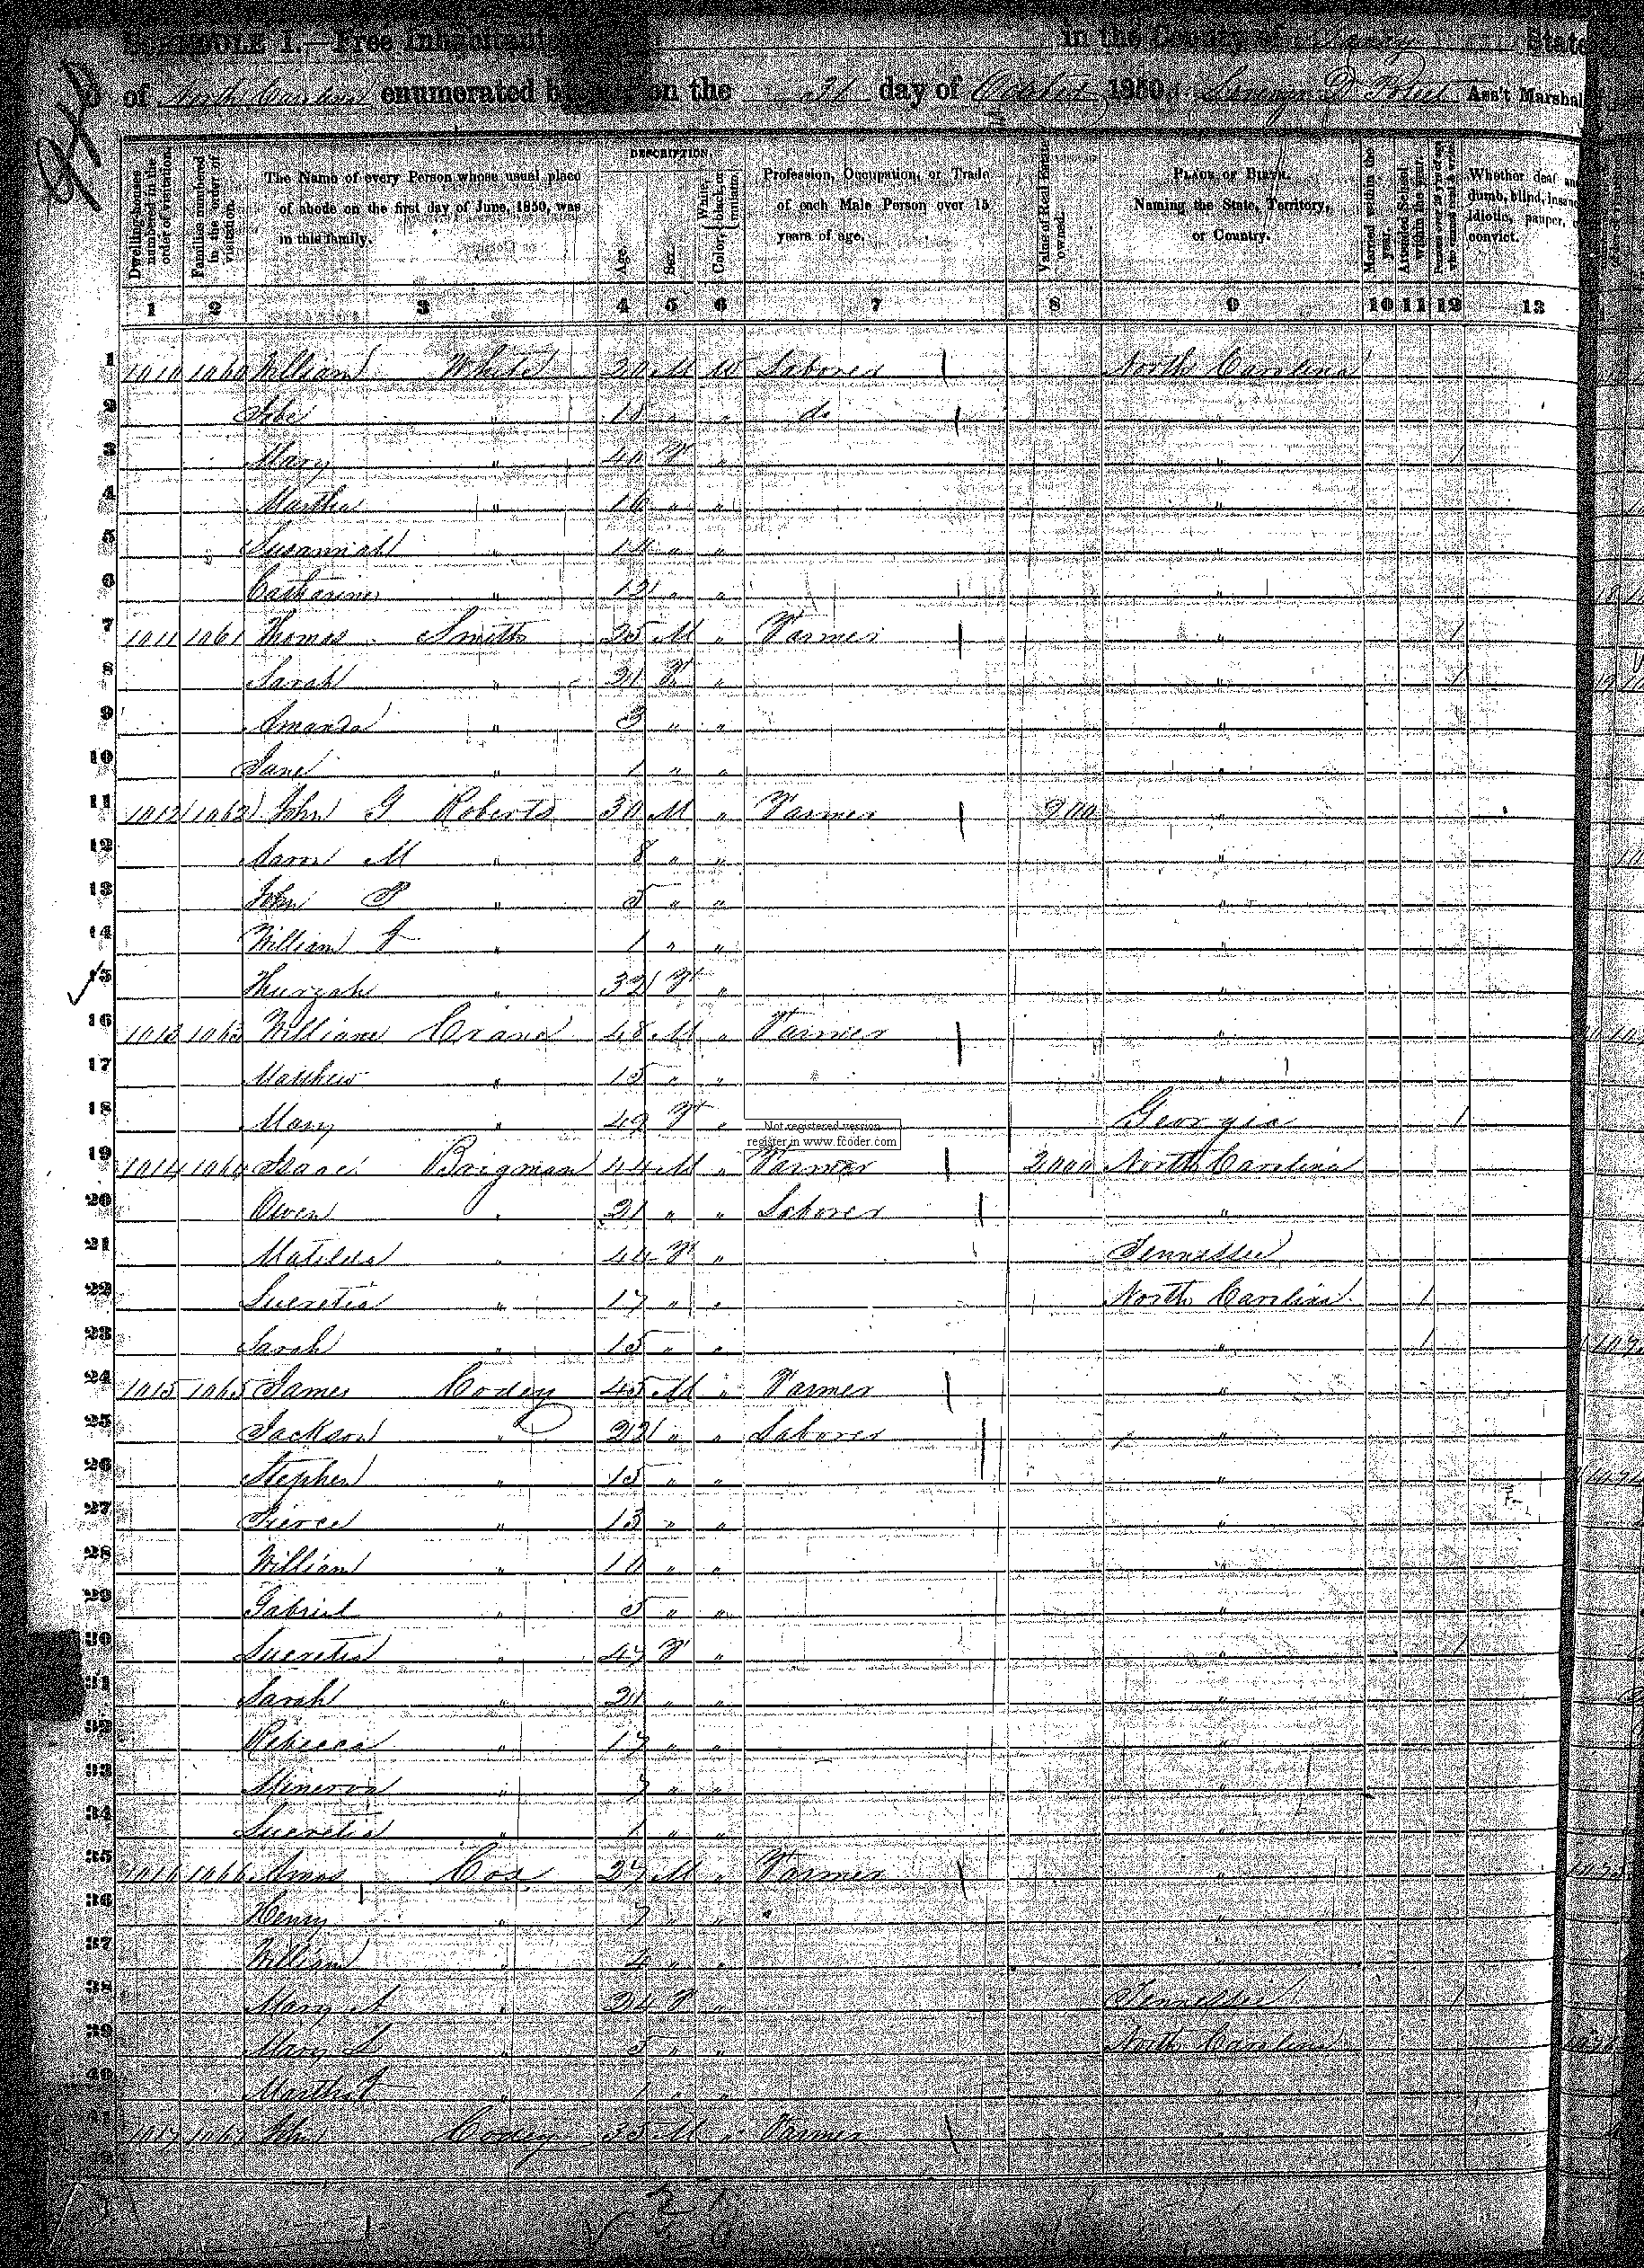 SCHEDULE I.—Free Inhabitants in the County of Yancey State
of North Carolina enumerated by me, on the 31 day of October 1850. D Ass't Marshal
Dwelling-houses numbered in the order of visitation.
Families numbered in the order of visitation.
The Name of every Person whose usual place of abode on the first day of June, 1850, was in this family.
DESCRIPTION.
Age.
Sex.
Color, White, black, or mulatto.
Profession, Occupation, or Trade of each Male Person over 15 years of age.
Value of Real Estate owned.
PLACE OF BIRTH. Naming the State, Territory, or Country.
Married within the year.
Attended School within the year.
Persons over 20 y'rs of age who cannot read & write.
Whether deaf and dumb, blind, insane, idiotic, pauper, or convict.
1 2 3 4 5 6 7 8 9 10 11 12 13
1 1010 1060 William White 20 M W Laborer North Carolina
2 " 18 " " do "
3 Mary " 40 F " " 1
4 Martha " 16 " " "
5 Susannah " 14 " " "
6 Catharine " 12 " " "
7 1011 1061 Thomas Smith 25 M " Farmer " 1
8 Sarah " 21 F " " 1
9 Amanda " 3 " " "
10 Jane " 1 " " "
11 1012 1062 John G Roberts 30 M " Farmer 900 "
12 Aaron M " 8 " " "
13 John P " 5 " " "
14 William J " 1 " " "
15 Thurzah " 32 F " "
16 1013 1063 William Crane 48 M " Farmer "
17 Matthew " 15 " " "
18 Mary " 49 F " Georgia 1
Not registered version
register in www.fcoder.com
19 1014 1064 Isaac Brigman 44 M " Farmer 2000 North Carolina
20 Owen " 21 " " Laborer "
21 Matilda " 44 F " Tennessee
22 Lucretia " 17 " " North Carolina 1
23 Sarah " 15 " " " 1
24 1015 1065 James Codey 45 M " Farmer "
25 Jackson " 22 " " Laborer "
26 Stephen " 15 " " "
27 Pierce " 13 " " "
28 William " 10 " " "
29 Gabriel " 5 " " "
30 Lucretia " 47 F " " 1
31 Sarah " 21 " " "
32 Rebecca " 17 " " "
33 Minerva " 7 " " "
34 Lucretia " 1 " " "
35 1016 1066 Amos Cox 27 M " Farmer "
36 Henry " 7 " " "
37 William " 4 " " "
38 Mary A " 24 F " Tennessee 1
39 Mary L " 5 " " North Carolina
40 Martha J " 1 " " "
41 1017 1067 John Codey 35 M " Farmer "